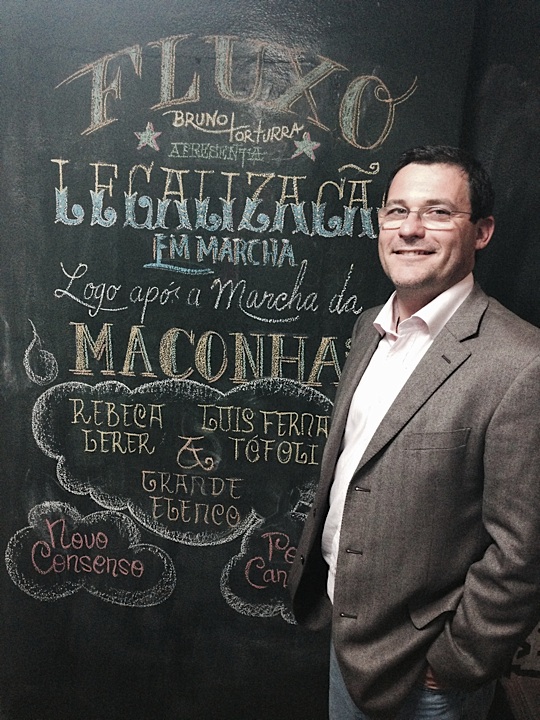 FLUXO
BRUNO TORTURRA
APRESENTA
LEGALIZAÇÃ
EM MARCHA
Logo após a Marcha da
MACONHA
REBECA LUIS FERNA
LERER & TÓFOLI
GRANDE
ELENCO
Novo
Consenso
Can